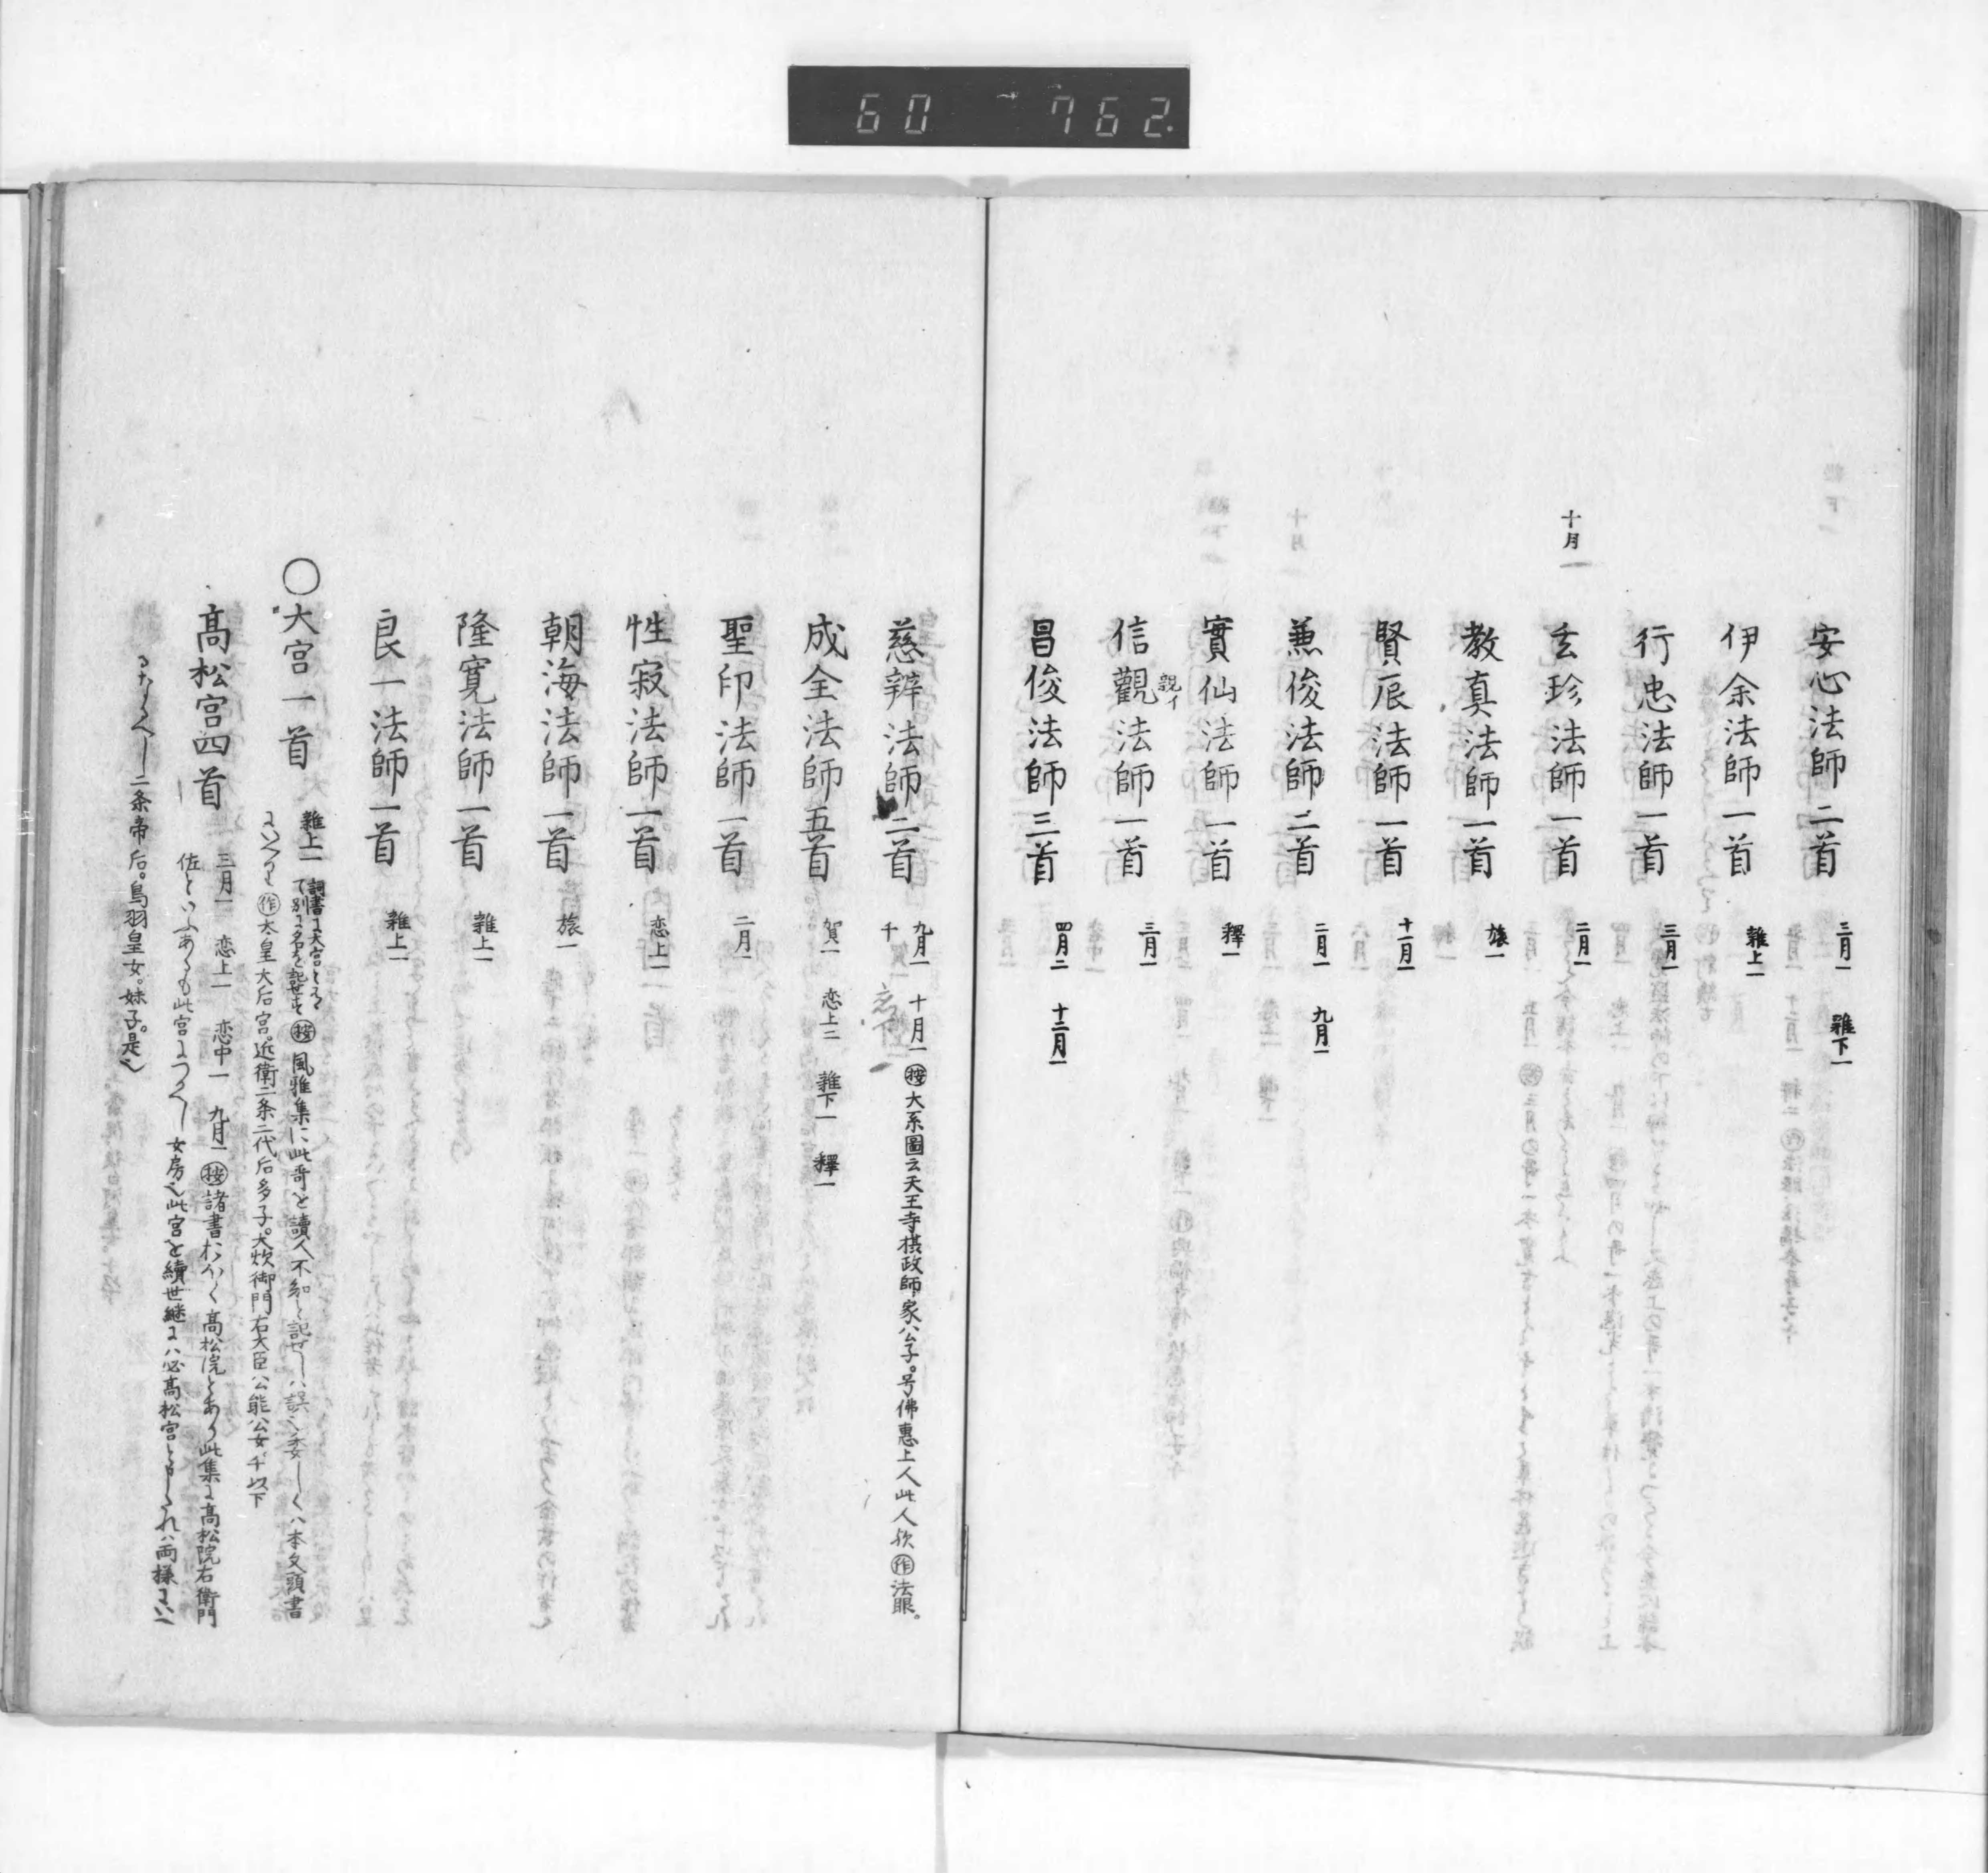 60 762
安心法師二首 三月一 雑下一
伊余法師一首 雑上一
行忠法師一首 三月一
十月一
玄珍法師一首 二月一
教真法師一首 旅一
賢辰法師一首 十一月一
兼俊法師二首 二月一 九月一
實仙法師一首 釋一
信觀法師一首 三月一
親イ
昌俊法師三首 四月二 十二月一
慈辨法師二首 九月一 十月一 按 大系圖云天王寺摂政師家公子。号佛惠上人此人欤 作 法眼。
千
成全法師五首 賀一 恋上二 雑下一 釋一
聖印法師一首 二月一
性寂法師一首 恋上一
朝海法師一首 旅一
隆寛法師一首 雑上一
良一法師一首 雑上一
○大宮一首 雑上一 詞書に大宮とある
て別に名を記せす 按 風雅集に此哥を讀人不知と記せしハ誤也委しくハ本文頭書
にいへり 作 太皇大后宮。近衛二条二代后多子。大炊御門右大臣公能公女千以下
髙松宮四首 三月一 恋上一 恋中一 九月一 按 諸書おほく髙松院とあり此集に髙松院右衛門
佐といふあるも此宮につかへし女房也此宮を續世継にハ必髙松宮と申したれハ両様にいへ
るなるへし二条帝后。鳥羽皇女。妹子。是也